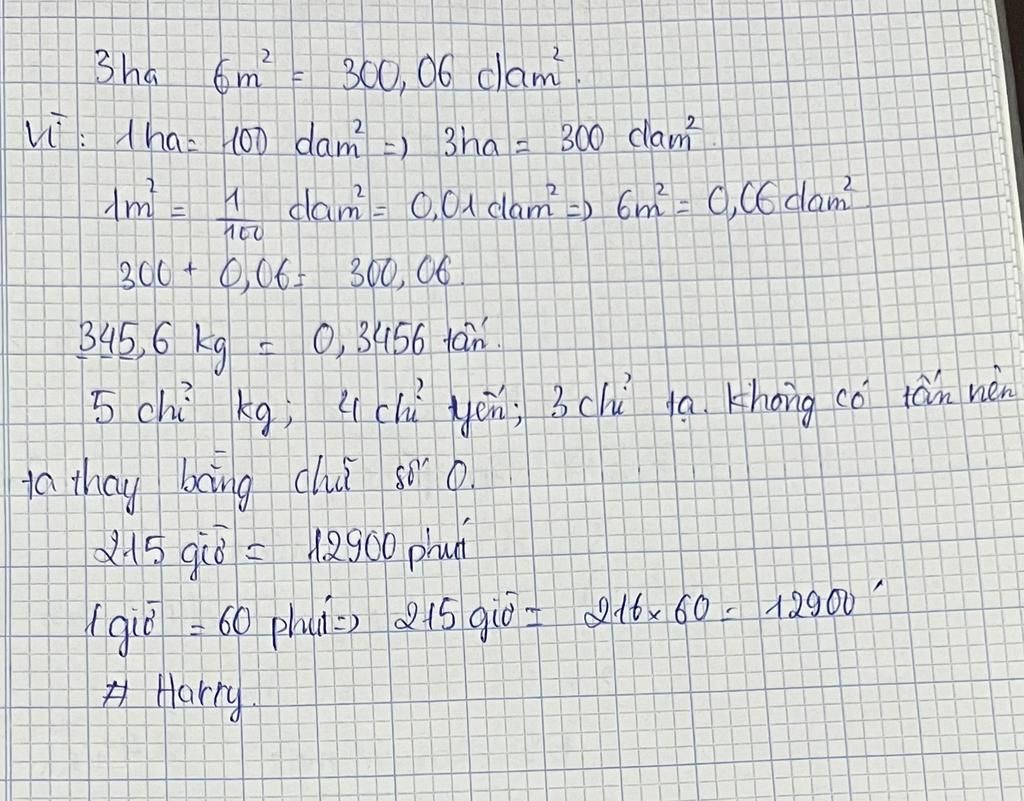 3ha 6m² = 300,06 dam².
Vì: 1ha = 100 dam² => 3ha = 300 dam².
1m² = 1/100 dam² = 0,01 dam² => 6m² = 0,06 dam²
300 + 0,06 = 300,06.
345,6 kg = 0,3456 tấn.
5 chỉ kg; 4 chỉ yến; 3 chỉ tạ. Không có tấn nên
ta thay bằng chữ số 0.
215 giờ = 12900 phút
1 giờ = 60 phút => 215 giờ = 216 x 60 = 12900'
# Harry.